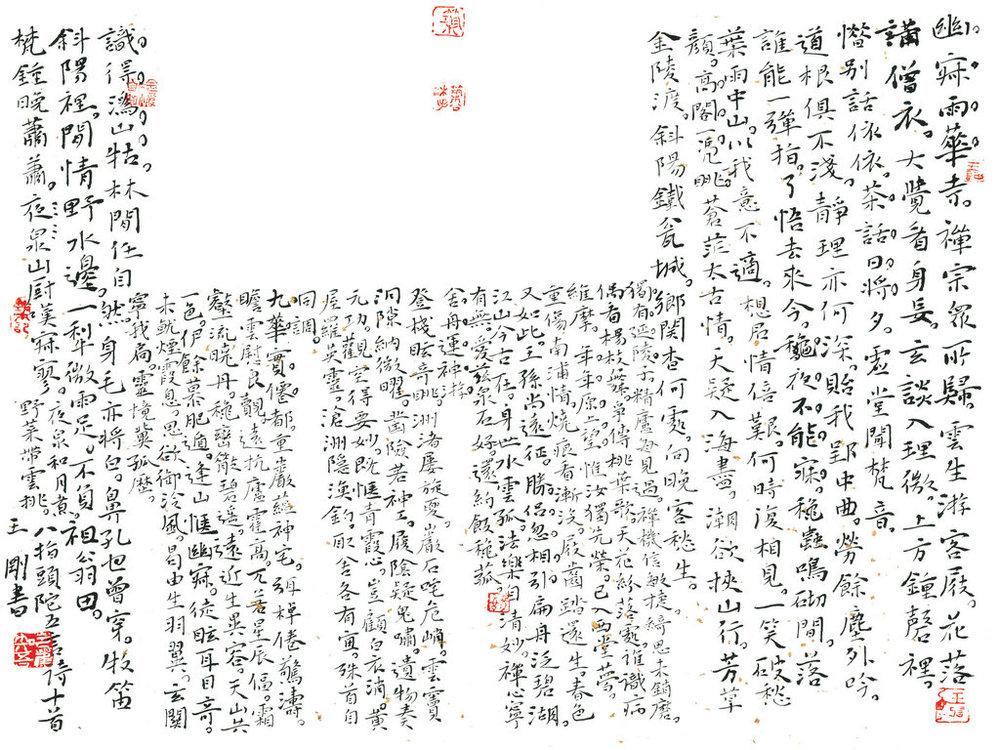 幽寂雨華寺。禪宗眾所歸。雲生游客屐。花落
講僧衣。大覺看身妄。玄談入理微。上方鐘磬裡。
惜別話依依。茶話日將夕。虛堂聞梵音。
道根俱不淺。靜理亦何深。貽我郢中曲。勞餘塵外吟。
誰能一彈指。了悟去來今。龝夜不能寐。龝蟲鳴砌間。落
葉雨中山。以我意不適。想君情倍艱。何時復相見。一笑破愁
顏。高閣一憑眺。蒼茫太古情。天疑入海盡。潮欲挾山行。芳草
金陵渡。斜陽鐵瓮城。鄉關杳何處。向晚客愁生。
獨有延陵子。精廬每見過。禪機信敏捷。綺思未銷磨。
偶看楊枝舞。單傳桃葉歌。天花紛落。誰識病
維摩。年年原上望。惟汝獨先榮。已入西堂夢。
重傷南浦情。燒痕看漸沒。屐齒踏還生。春色
又如此。王孫尚遠征。勝侶忽相引。扁舟泛碧湖。
江山今古在。身世水雲孤。法樂自清妙。禪心寧
有無。愛茲泉石好。還約飯龝菰。
舍舟運神
登棧眩奇眺。洲渚屢旋變。巖石咤危峭。雲竇
洞隙納微曜。齒險若神工。履陰疑鬼嘯。遺物奏
元功。觀空得要妙。既愜青霞心。豈顧白衣誚。黃
屋羅英靈。滄洲隱漁釣。取舍各有寓。殊首自
同調。
九華實僊都。重巖蘊神宅。弭櫂倦驚濤。
瞻雲慰良覿。遠抗廬霍高。兀若星辰偪。霜
壑流晚丹。龝巒散碧遙。遠近生異容。天山共
一色。伊餘慕肥遁。逢山愜幽寂。徒眩耳目奇。
未躭煙霞息。思欲御泠風。曷由生羽翼。玄關
寧我扃。靈境冀孤歷。
識得溈山牯。林間任自然。身毛亦將白。鼻孔也曾穿。牧笛
斜陽裡。閒情野水邊。一犁微雨足。不負祖翁田。
梵鐘晚蕭蕭。夜泉山厨嘆寂寥。夜泉和月煮。野菜帶雲挑。八指頭陀五言詩十首
王剛書